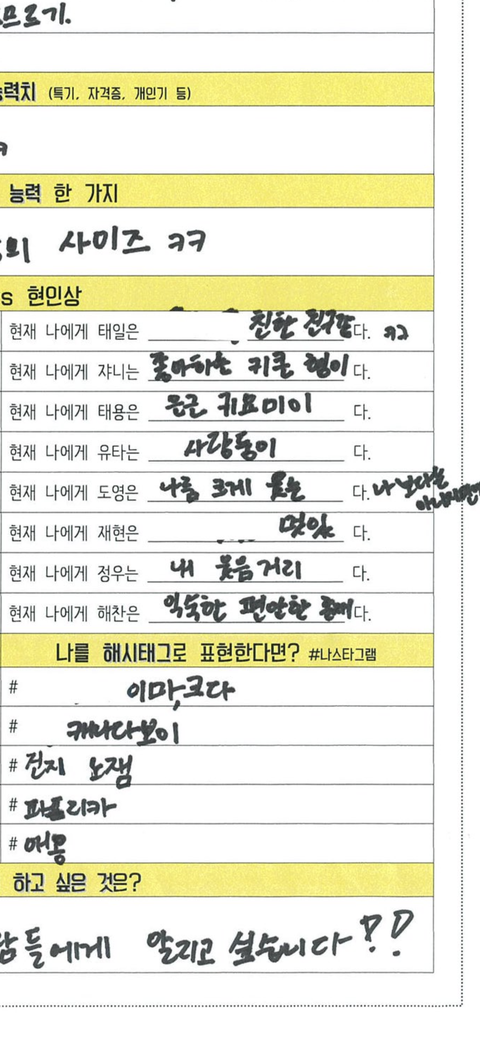 능력치 (특기, 자격증, 개인기 등)
능력 한 가지
사이즈 ㅋㅋ
s 현인상
현재 나에게 태일은 친한 친구같다. ㅋㅋ
현재 나에게 쟈니는 좋아하는 키큰 형이다.
현재 나에게 태용은 은근 귀요미이다.
현재 나에게 유타는 사랑둥이다.
현재 나에게 도영은 나름 크게 웃는다. 나보다는
현재 나에게 재현은 멋있다.
현재 나에게 정우는 내 웃음거리다.
현재 나에게 해찬은 익숙한 편안한 존재다.
나를 해시태그로 표현한다면? #나스타그램
# 이마,크다
# 캐나다보이
# 진지 노잼
# 파프리카
# 애몽
하고 싶은 것은?
람들에게 알리고 싶습니다!!